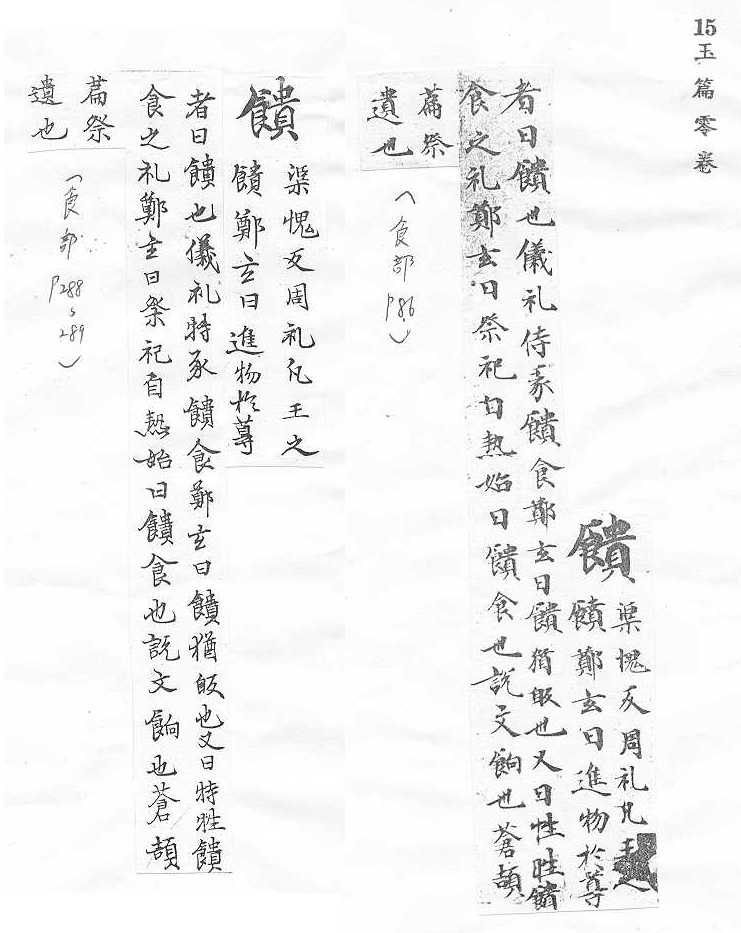 15玉篇零卷
饋
渠愧反周礼凡王之
饋鄭玄曰進物於尊
者曰饋也儀礼侍豕饋食鄭玄曰饋猶飯也又曰牲牲饋
食之礼鄭玄曰祭祀自熟始曰饋食也説文餉也蒼頡
篇祭
遺也
(食部 P86)
饋
渠愧反周礼凡王之
饋鄭玄曰進物於尊
者曰饋也儀礼特豕饋食鄭玄曰饋猶飯也又曰特牲饋
食之礼鄭玄曰祭祀自熟始曰饋食也説文餉也蒼頡
篇祭
遺也
(食部 P288~289)